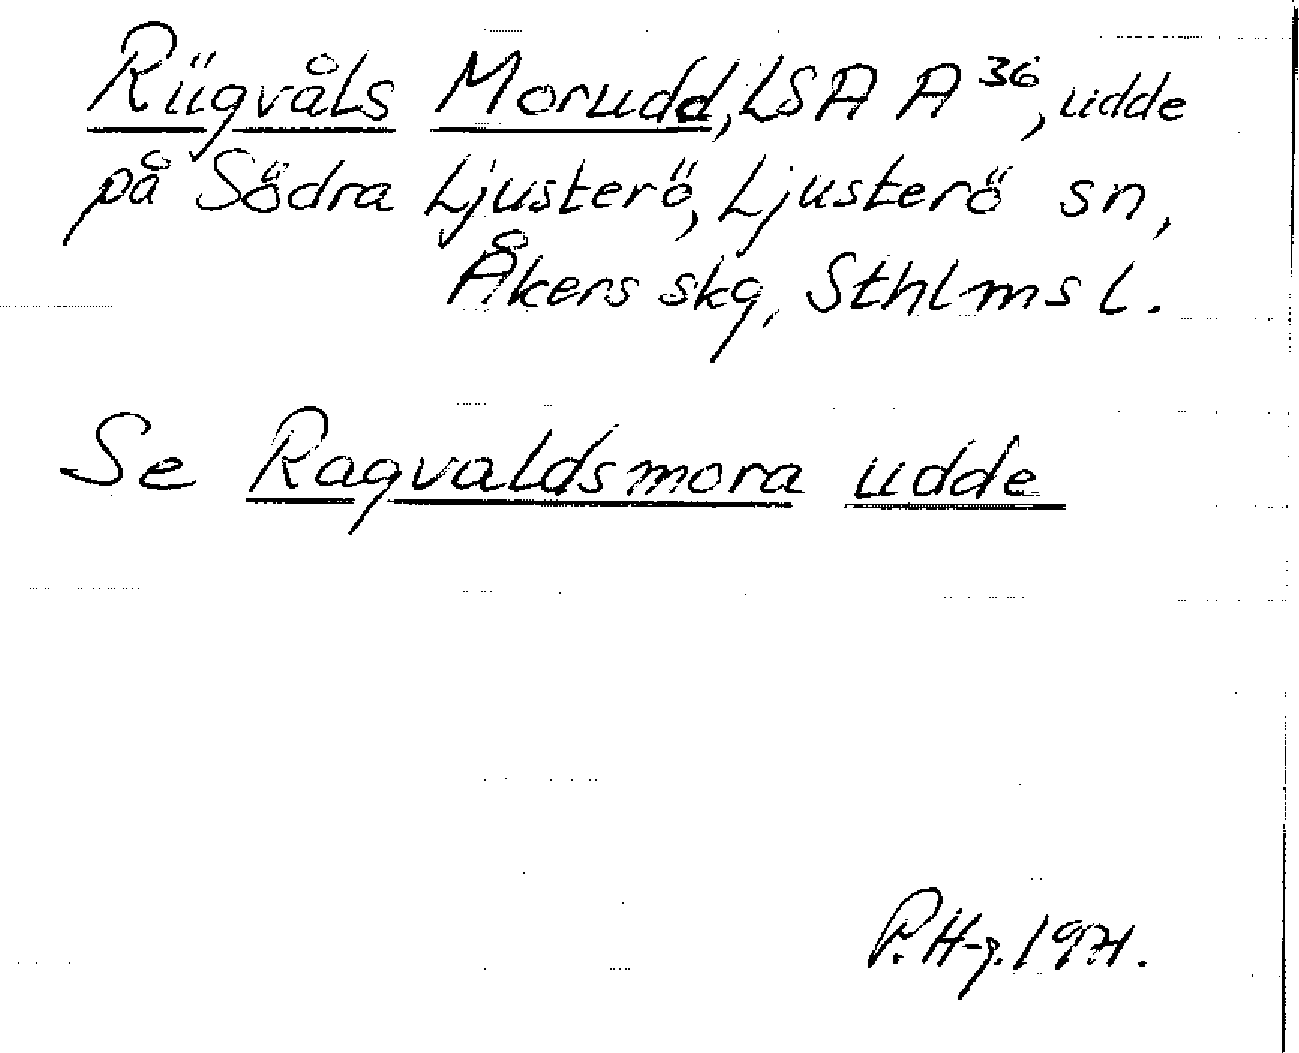 Riigvåls Morudd, LSA A 36, udde
på Södra Ljusterö, Ljusterö sn,
Åkers skg, Sthlms l.
Se Ragvaldsmora udde
P. H-g. 1971.